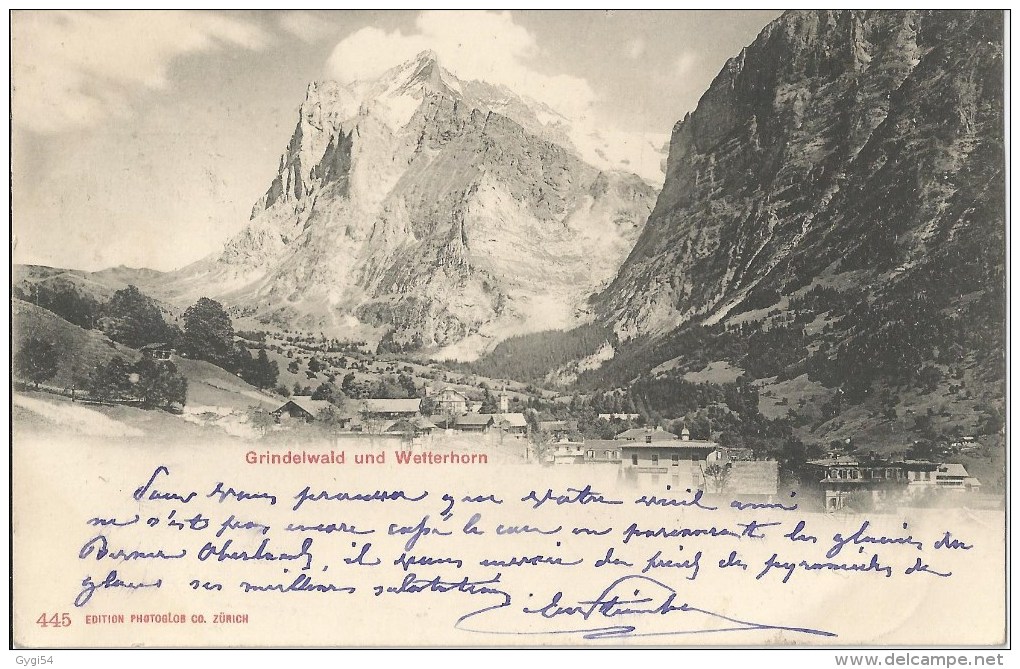 Grindelwald und Wetterhorn
Pour vous prouver que votre vieil ami
ne s'est pas encore cassé le cou en parcourant les glaciers du
Berner Oberland, il vous envoie du pied des pyramides de
glace ses meilleures salutations
445 EDITION PHOTOGLOB CO. ZÜRICH
Gygi54
http://www.delcampe.net